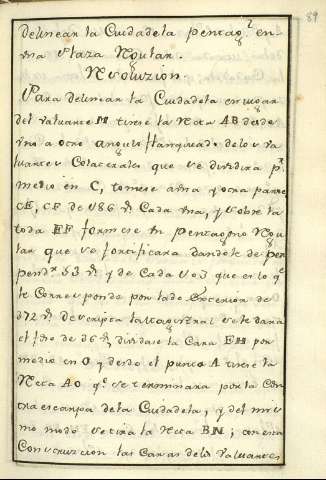 89
delinear la Ciudadela pentag.l en
una Plaza Regular.
Resoluzion.
Para delinear la Ciudadela en lugar
del valuarte M tirese la Recta AB desde
uno a otro angulo flanqueado delos va
luartes Colaterales que se dividira p.r
medio en C, tomese a una y otra parte
CE, CF de 86 Cada una, y sobre la
toda EF formese un Pentagono Regu
lar que se fortificara dandole de per
pend.r 53 y de Cada que es lo q.e
le Corresponde por lado Exterior de
172 descripta la Magistral se le dara
el foso de 16 dividase la Cara EH por
medio en O y desde el punto A tirese la
Recta AO q.e se terminara por la Con
tra escarpa dela Ciudadela, y del mis
mo modo se tira la Recta BN; con esta
Construzion las Caras delos Valuartes